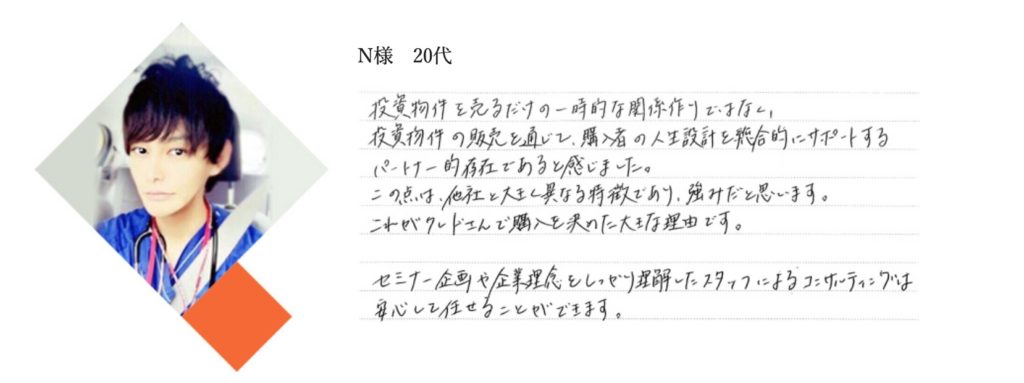 N様 20代
投資物件を売るだけの一時的な関係作りではなく、
投資物件の販売を通じて、購入者の人生設計を総合的にサポートする
パートナー的存在であると感じました。
この点は、他社と大きく異なる特徴であり、強みだと思います。
これがクレドさんで購入を決めた大きな理由です。
セミナー企画や企業理念をしっかり理解したスタッフによるコンサルティングは
安心して任せることができます。